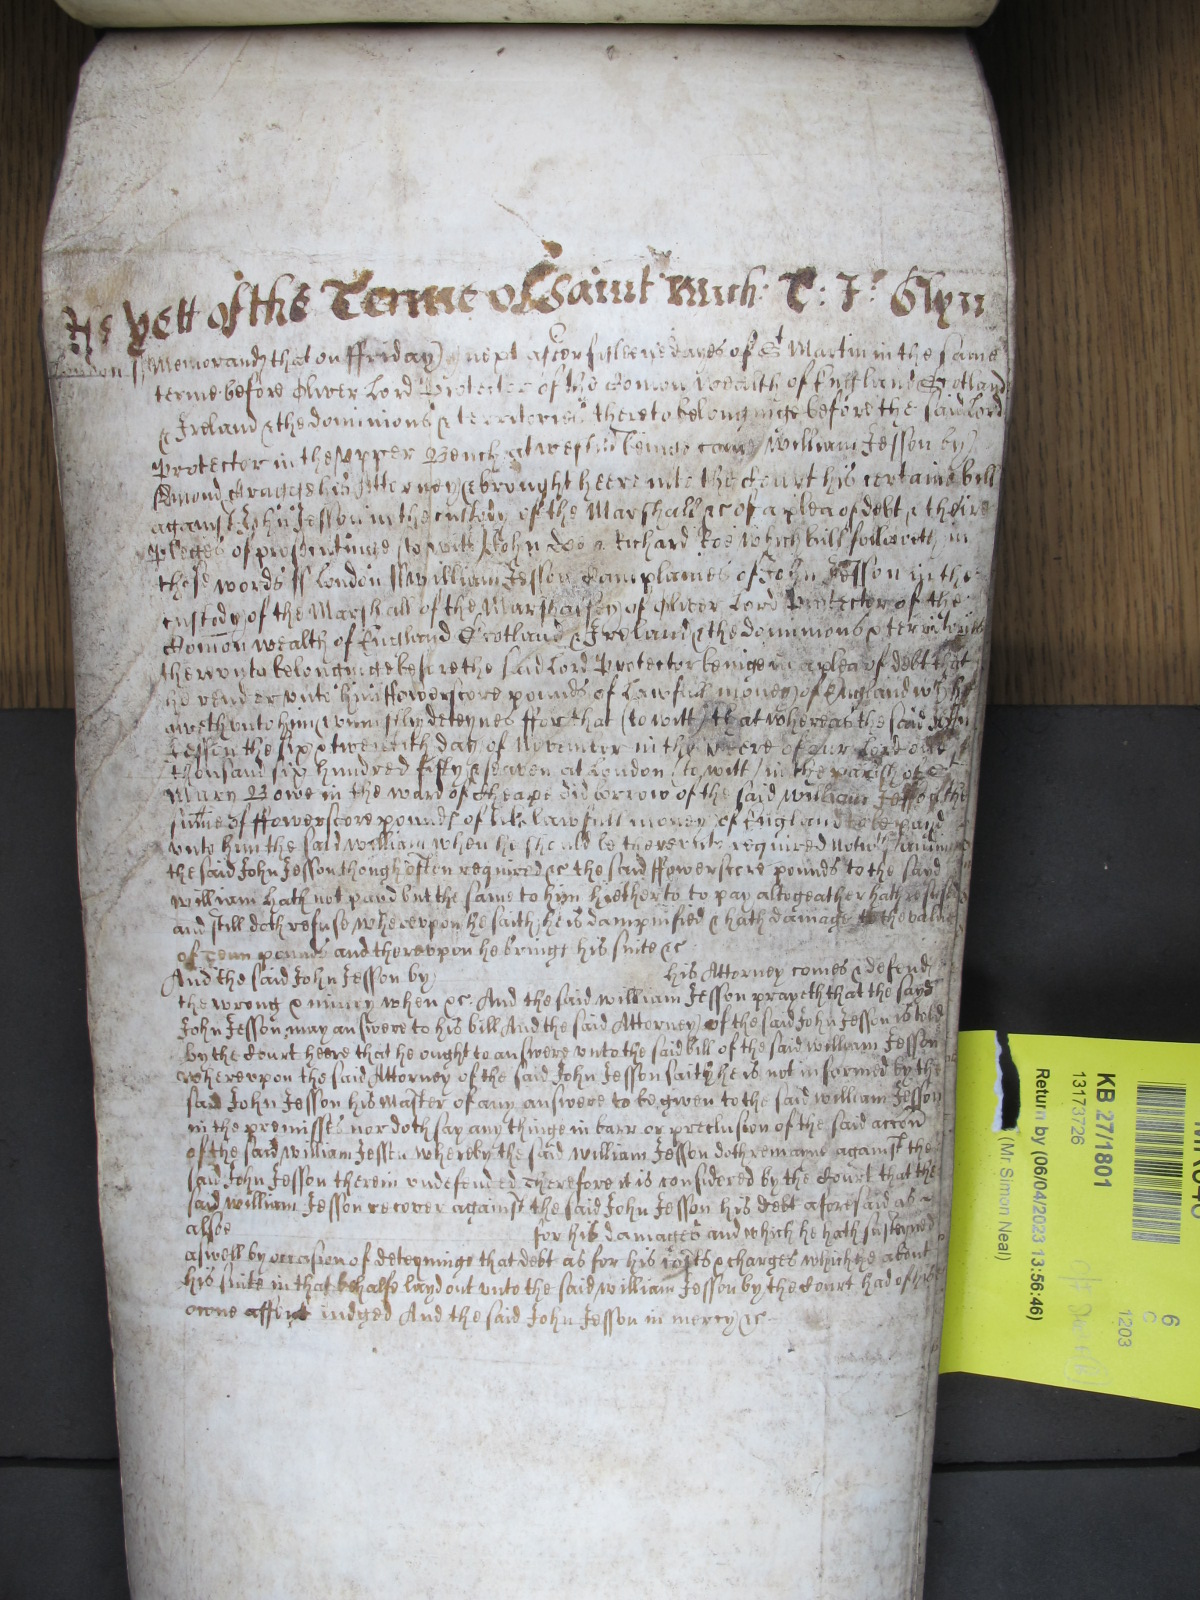 As yett of the Terme of Saint Mich: T: J: Glyn
London ss Memorand that on ffriday next after fifteene dayes of St Martin in the same
terme before Oliver Lord Protector of the Comon wealth of England Scotland
& Ireland & the dominions & territories thereto belonginge before the said Lord
Protector in the upper Bench at Westm beinge came William Jesson by
Edmond his Atterney & brought heere into the Court his certaine bill
against John Jesson in the custody of the Marshall &c of a plea of debt & theire
pleges of prosecutinge to witt John Doo & Richard Roe which bill followeth in
these words ss London ss William Jesson Complaines of John Jesson in the
custody of the Marshall of the Marshalsey of Oliver Lord Protector of the
Comon wealth of England Scotland & Ireland & the dominions & territories
thereunto belonginge before the said Lord Protector beinge in a plea of debt that
he render unto him ffowerscore pounds of Lawfull money of England wch he
oweth unto him & uniustly deteynes ffor that (to witt) that whereas the said John
Jesson the six & twentith day of November in the yeere of our Lord one
thousand six hundred fifty & seaven at London (to witt) in the parish of St
Mary Bowe in the ward of Cheape did borrow of the said William Jesson the
sume of ffowerscore pounds of like lawfull money of England to be payd
unto him the said William when he should be thereunto required
the said John Jesson though often required &c the said ffowerscore pounds to the said
William hath not payd but the same to him hietherto to pay altogeather hath refused
and still doth refuse whereupon he saith he is dampnified & hath damage to the value
of Tenn pounds and thereupon he brings his suite &c
And the said John Jesson by his Attorney comes & defend
the wrong & iniury when &c. And the said William Jesson prayeth that the sayd
John Jesson may answere to his bill And the said Attorney of the said John Jesson is told
by the Court heere that he ought to answere unto the said bill of the said William Jesson
whereupon the said Attorney of the said John Jesson saith he is not informed by the
said John Jesson his Master of any answere to be given to the said William Jesson
in the premisses nor doth say any thinge in barr or preclusion of the said accon
of the said William Jesson whereby the said William Jesson doth remayne against the
said John Jesson therein undefended Therefore it is considered by the Court that the
said William Jesson recover against the said John Jesson his debt aforesaid as
alsoe for his damages and which he hath susteyned
aswell by occasion of deteyninge that debt as for his costs & charges which he about
his suite in that behalfe layd out unto the said William Jesson by the Court had of his
owne assent iudged And the said John Jesson in mercy &c
KB 27/1801
13173726
Return by (06/04/2023 13:56:46)
(Mr Simon Neal)
6
C
1203